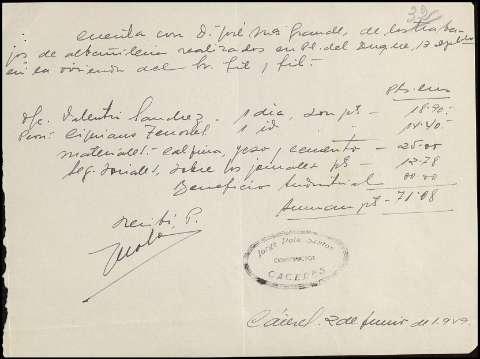 cuenta con D. José Mª Grande, de los traba-
jos de albañilería realizados en Pl. del Duque, 12
en la vivienda del Sr. Gil y Gil:-
Pts. cts
Of. Valentín Sanchez. 1 dia, son pts - 18.90.-
Peon: Cipriano 1 id. - 14.40.-
Materiales:- cal fina, yeso y cemento - 25.00
Seg. Sociales, sobre los jornales pts - 12.78
Beneficio Industrial 00.00
Suman pts - 71.08
Recibí, P.
Jorge
CONSTRUCTOR
CACERES
Cáceres. 2 de Junio de 1.949.